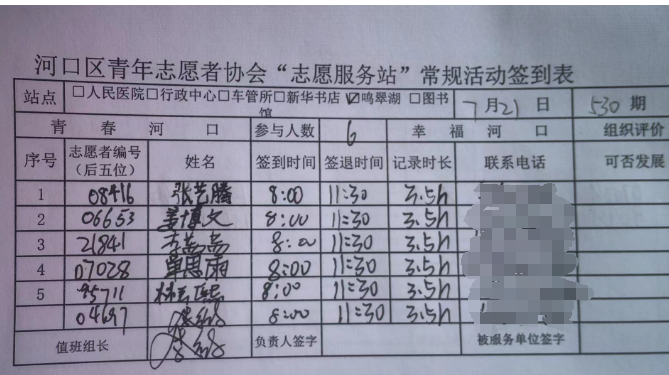 河口区青年志愿者协会“志愿服务站”常规活动签到表
站点 □人民医院□行政中心□车管所□新华书店☑鸣翠湖 □图书馆 7月21日 530期
青春河口 参与人数 6 幸福河口 组织评价
序号 志愿者编号（后五位） 姓名 签到时间 签退时间 记录时长 联系电话 可否发展
1 08416 张艺腾 8:00 11:30 3.5h
2 06653 姜博文 8:00 11:30 3.5h
3 21841 8:00 11:30 3.5h
4 07028 单思雨 8:00 11:30 3.5h
5 95711 林 8:00 11:30 3.5h
04697 8:00 11:30 3.5h
值班组长 负责人签字 被服务单位签字